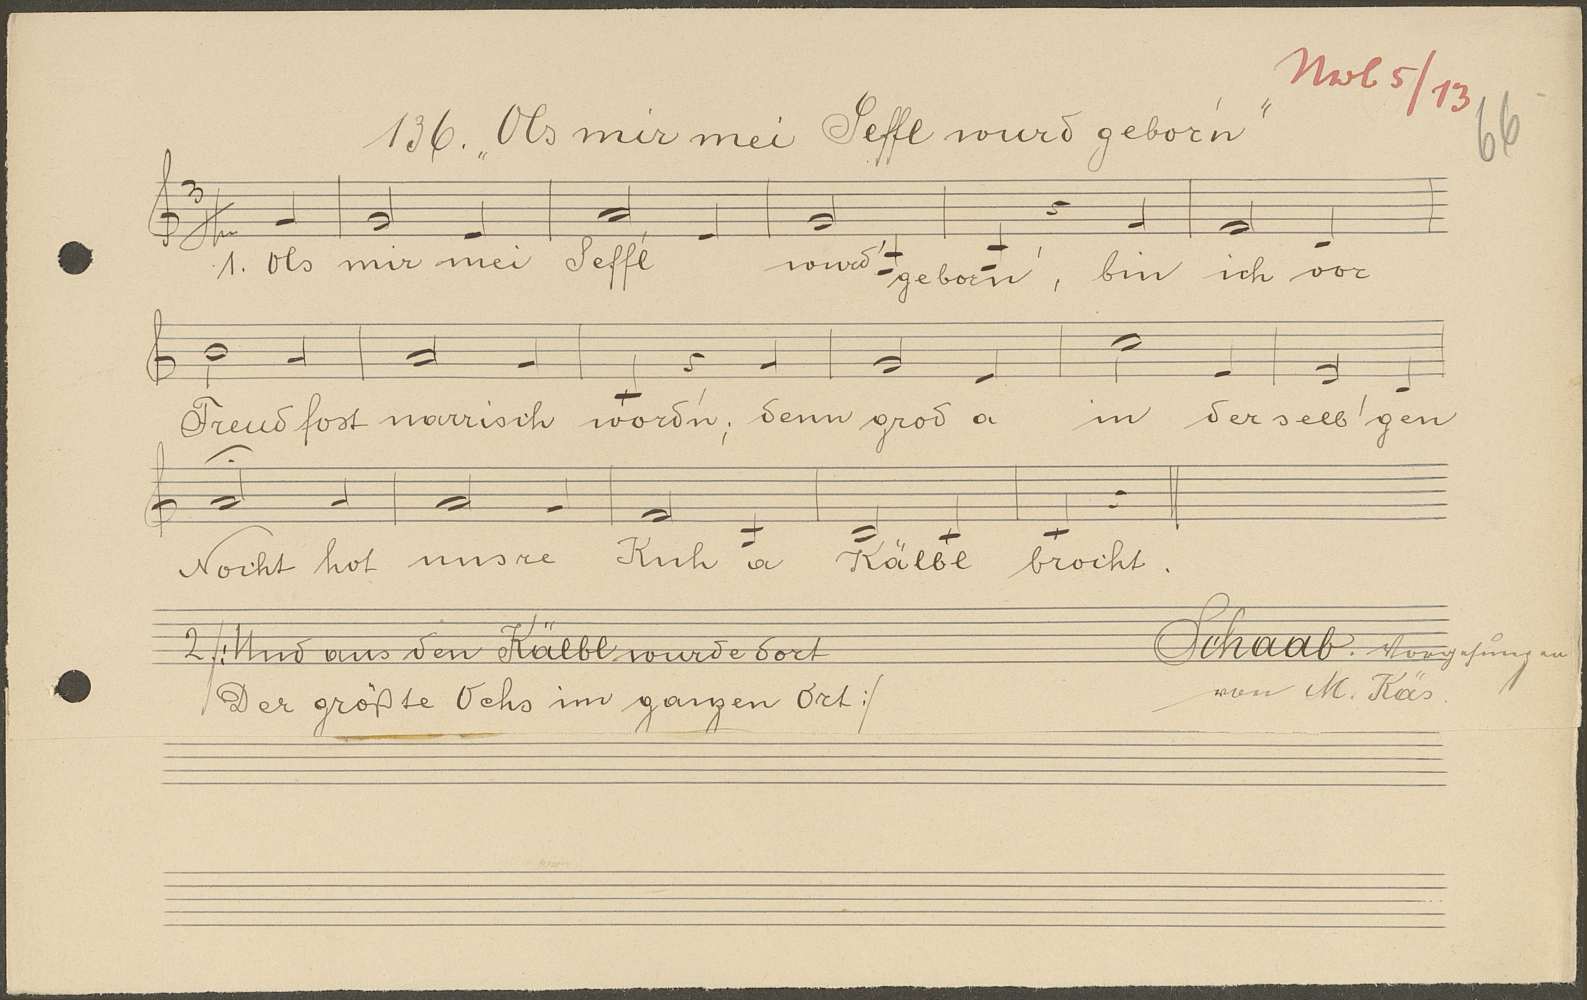 Nwb 5/13
66
136. „Ols mir mei Seffl wurd gebor'n“
3/4
1. Ols mir mei Seffl wurd' geborn', bin ich vor
Freud fost narrisch word'n, denn grod a in der selb'gen
Nocht hot unsre Kuh a Kälbl brocht.
2. /: Und aus den Kälbl wurde dort
Der größte Ochs im ganzen Ort :/
Schaab. Vorgesungen
von M. Käs.